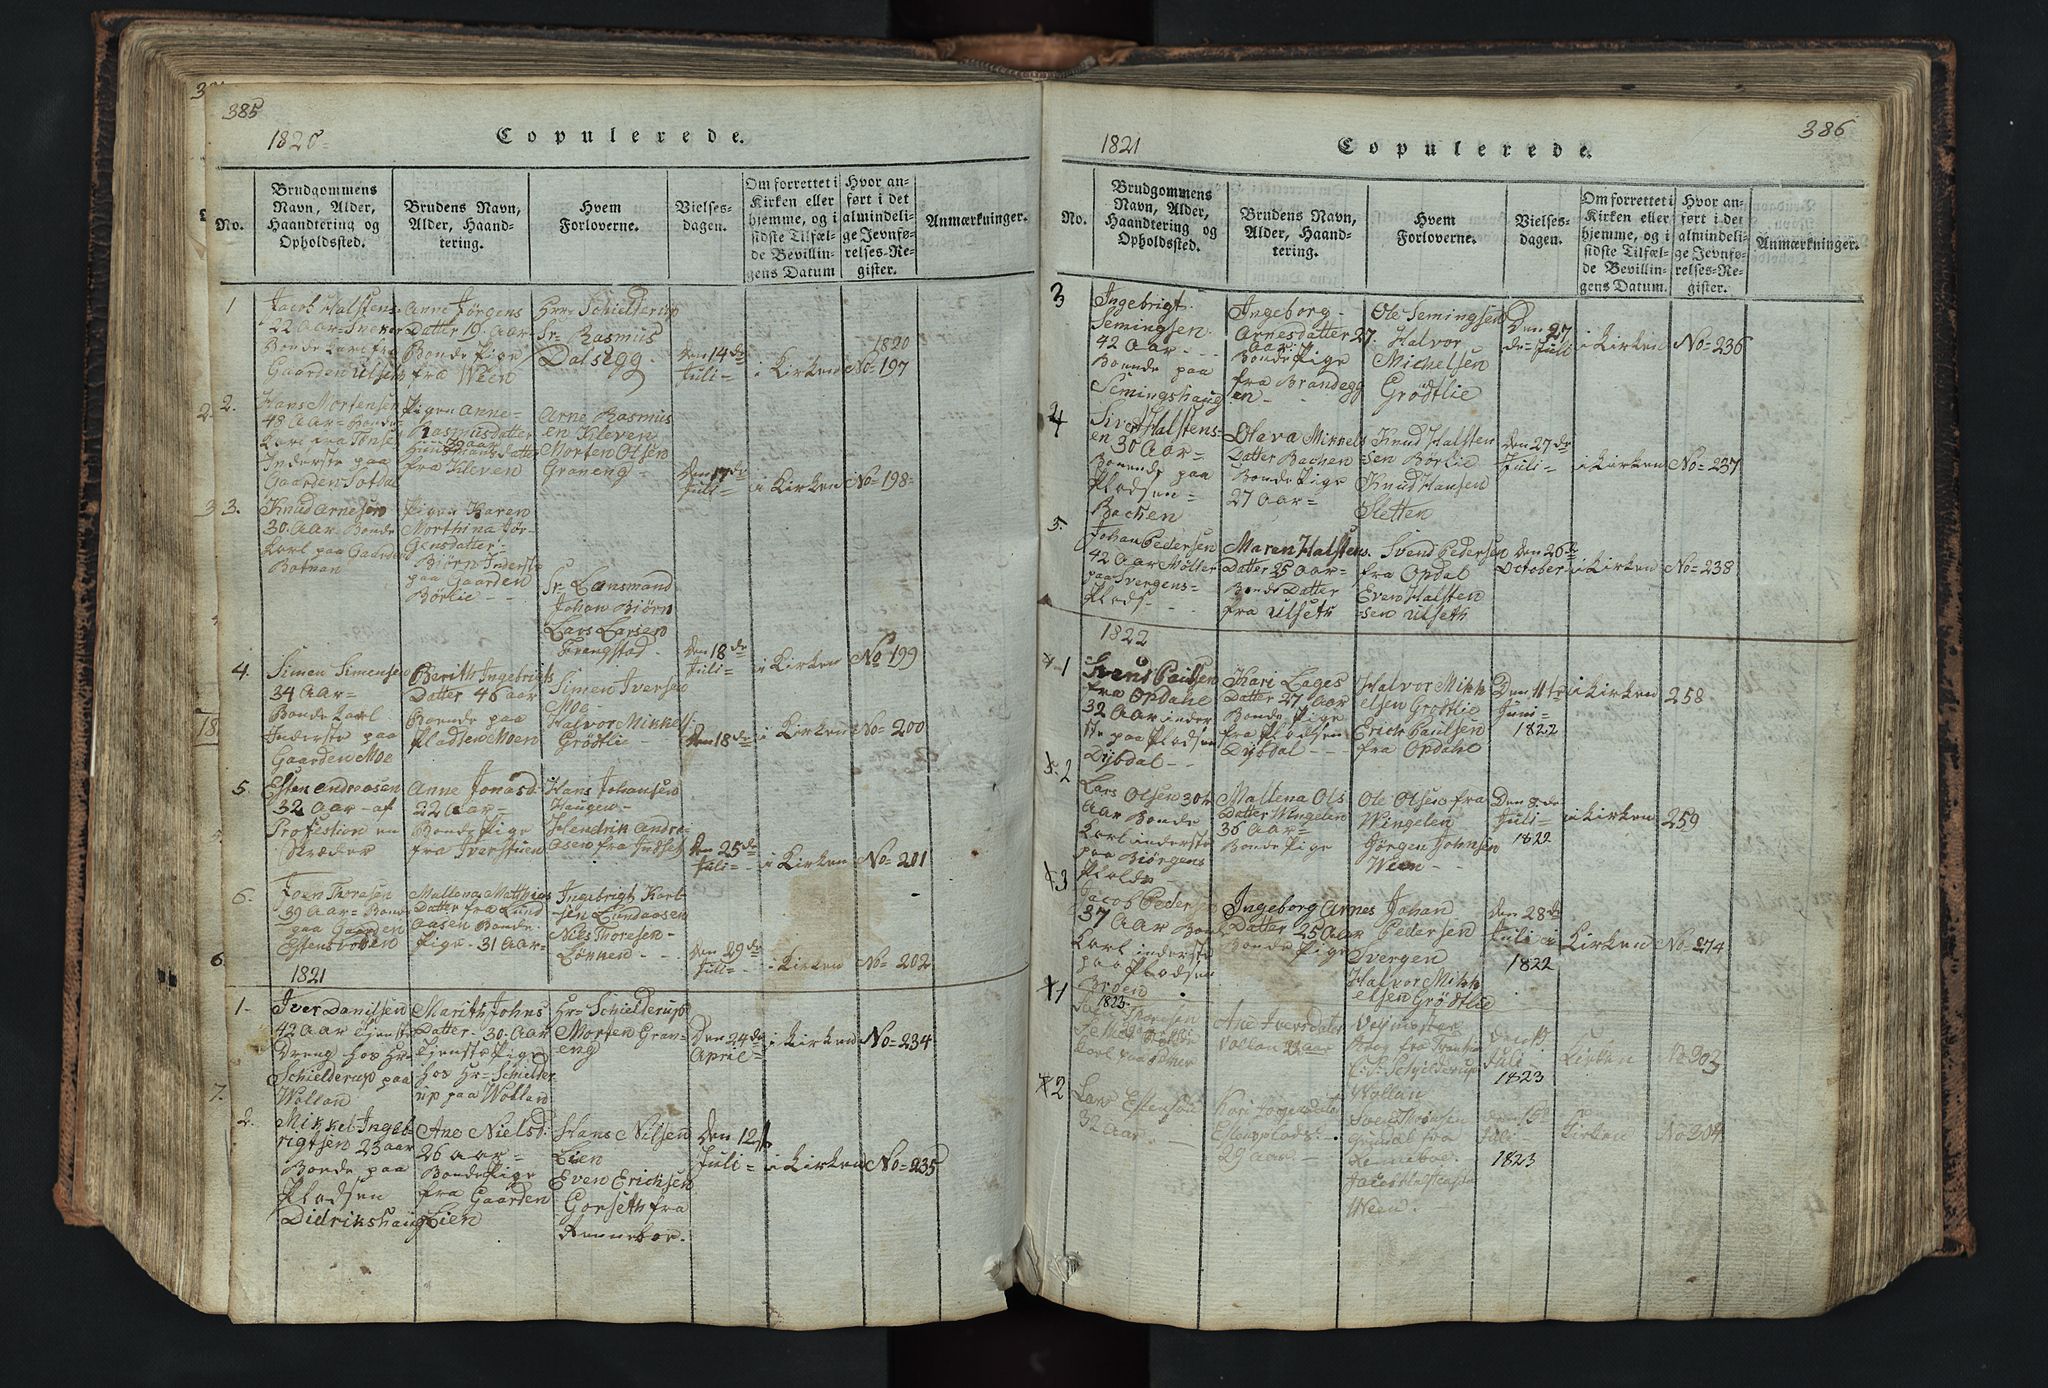 385
1820
Copulerede.
No.
Brudgommens Navn, Alder, Haandtering og Opholdssted.
Brudens Navn, Alder, Haandtering.
Hvem Forloverne.
Vielsesdagen.
Om forrettet i Kirken eller hjemme, og i sidste Tilfælde Bevillingens Datum
Hvor anført i det almindelige Jevnførelses-Register.
Anmærkninger.
1
Jacob Halstens-
22 Aar
Bonde Karl fra
Gaarden Ulseth
Anne Jørgens
Datter 19 Aar
Bonde Pige
fra Ween
Hrr Schielderup
Sr Rasmus
Dalsegg
Den 14de
Juli
i Kirken
1820
No 197
2.
Hans Mortensen
48 Aar Bonde
Karl fra Tønset
Inderste paa
Gaarden
Pigen Anne
Rasmusdatter
fra Kleven
Arne Rasmus
en Kleven
Morten Olsen
Graneng
Den 17de
Juli
i Kirken
No 198
3.
Knud Arnesen
30 Aar Bonde
Karl paa Gaarden
Botnan
Pigen Karen
Morthina Jør-
gensdatter
Biørn Inderste
paa Gaarden
Børlie
Sr Lansmand
Johan Biørn
Lars Larsen
Den 18de
Juli
i Kirken
No 199
4.
Simen Simensen
34 Aar
Bonde Karl
Inderste paa
Gaarden Moe
Berith Ingebrigts
Datter 46 aar
Boende paa
Pladsen Moen
Simen Iversen
Moe
Halvor Mikkels
Grødtlie
Den 18de
i Kirken
No 200
5.
Esten Andreasen
32 Aar af
Profestion en
Skræder
Anne Jonasd:
22 aar
Bonde Pige
fra Iverstuen
Hans Johansen
Haugen
Hendrik Andre-
asen fra Indset
Den 25de
Juli
i Kirken
No 201
6.
Joen Thoresen
39 Aar Bonde
paa Gaarden
Estensvolden
Mallena Matthias
Datter fra Lund
aasen Bonde
Pige 31 Aar
Ingebrigt Karl
sen Lundaasen
Niels Thoresen
Lønnen
Den 29de
Juli
i Kirken
No 202
1821
1.
Iver Danilsen
42 Aar Tjeneste
Dreng hos Hr
Schielderup paa
Wollan
Marith Johns
Datter 30 Aar
Tjeneste Pige
hos Hr Schielder
up paa Wollan
Hr Schielderup
Morten Gran-
eng
Den 24de
April
i Kirken
No 234
2.
Mikkel Ingeb-
rigtsen 23 aar
Bonde paa
Pladsen
Didrikshaug
Ane Nielsd:
26 aar
Bonde Pige
fra Gaarden
Lien
Hans Nilsen
Lien
Even Erichsen
Gorseth fra
Renneboe
Den 12te
Juli
i Kirken
No 235
386
1821
Copulerede.
No.
Brudgommens Navn, Alder, Haandtering og Opholdssted.
Brudens Navn, Alder, Haandtering.
Hvem Forloverne.
Vielsesdagen.
Om forrettet i Kirken eller hjemme, og i sidste Tilfælde Bevillingens Datum.
Hvor anført i det almindelige Jevnførelses-Register.
Anmærkninger.
3
Ingebrigt
Semingsen
42 Aar
Boende paa
Semingshaug
Ingeborg
Arnesdatter 27
Aar
Bonde Pige
fra Brandegg
en
Ole Semingsen
Halvor
Michelsen
Grødtlie
Den 27
de Juli
i Kirken
No 236
4
Siver Halstens-
en 30 Aar
Boende paa
Pladsen
Bachen
Olava Mikkels
Datter Bachen
Bonde Pige
27 Aar
Knud Halsten
sen Børlie
Knud Hansen
Sletten
Den 27de
Juli
i Kirken
No 237
5.
Johan Pedersen
42 Aar Møller
paa Svergens-
Plads
Maren Halstens
Datter 25 Aar
Bonde Datter
fra Ulseth
Svend Pedersen
fra Opdal
Even Halsten
sen Ulseth
Den 26de
October
i Kirken
No 238
1822
1
Svend Paulsen
fra Opdahl
32 Aar inder
ste paa Pladsen
Dybdal
Kari Lages
Datter 27 Aar
Bonde Pige
fra Pladsen
Dybdal
Halvor Mikk
elsen Grødtlie
Erich Paulsen
fra Opdahl
Den 11te
Juni
1822
i Kirken
258
2
Lars Olsen 30te
Aar Bonde
Karl inderste
paa Biørgens
Plads
Mallena Ols
Datter Wingelen
36 Aar
Bonde Pige
Ole Olsen fra
Wingelen
Jørgen Johnsen
Ween
Den 8de
Juli
1822
i Kirken
259
3
Jacob Pedersen
37 Aar Bonde
Karl inderste
paa Pladsen
Broen
Ingeborg Arnes
Datter 25 Aar
Bonde Pige
Johan
Pedersen
Svergen
Halvor Mikk
elsen Grødtlie
Den 28de
Juli
1822
i Kirken
No 274
1
1823
Ane Iversdater
Vollan 22 aar
Wollan
Juli
1823
Kirken
No 303
2
Lars Estensen
32 Aar
Kari
Estensplads
29 aar
Sven
fra
Renneboe
Ween
Juli
1823
Kirken
No 304